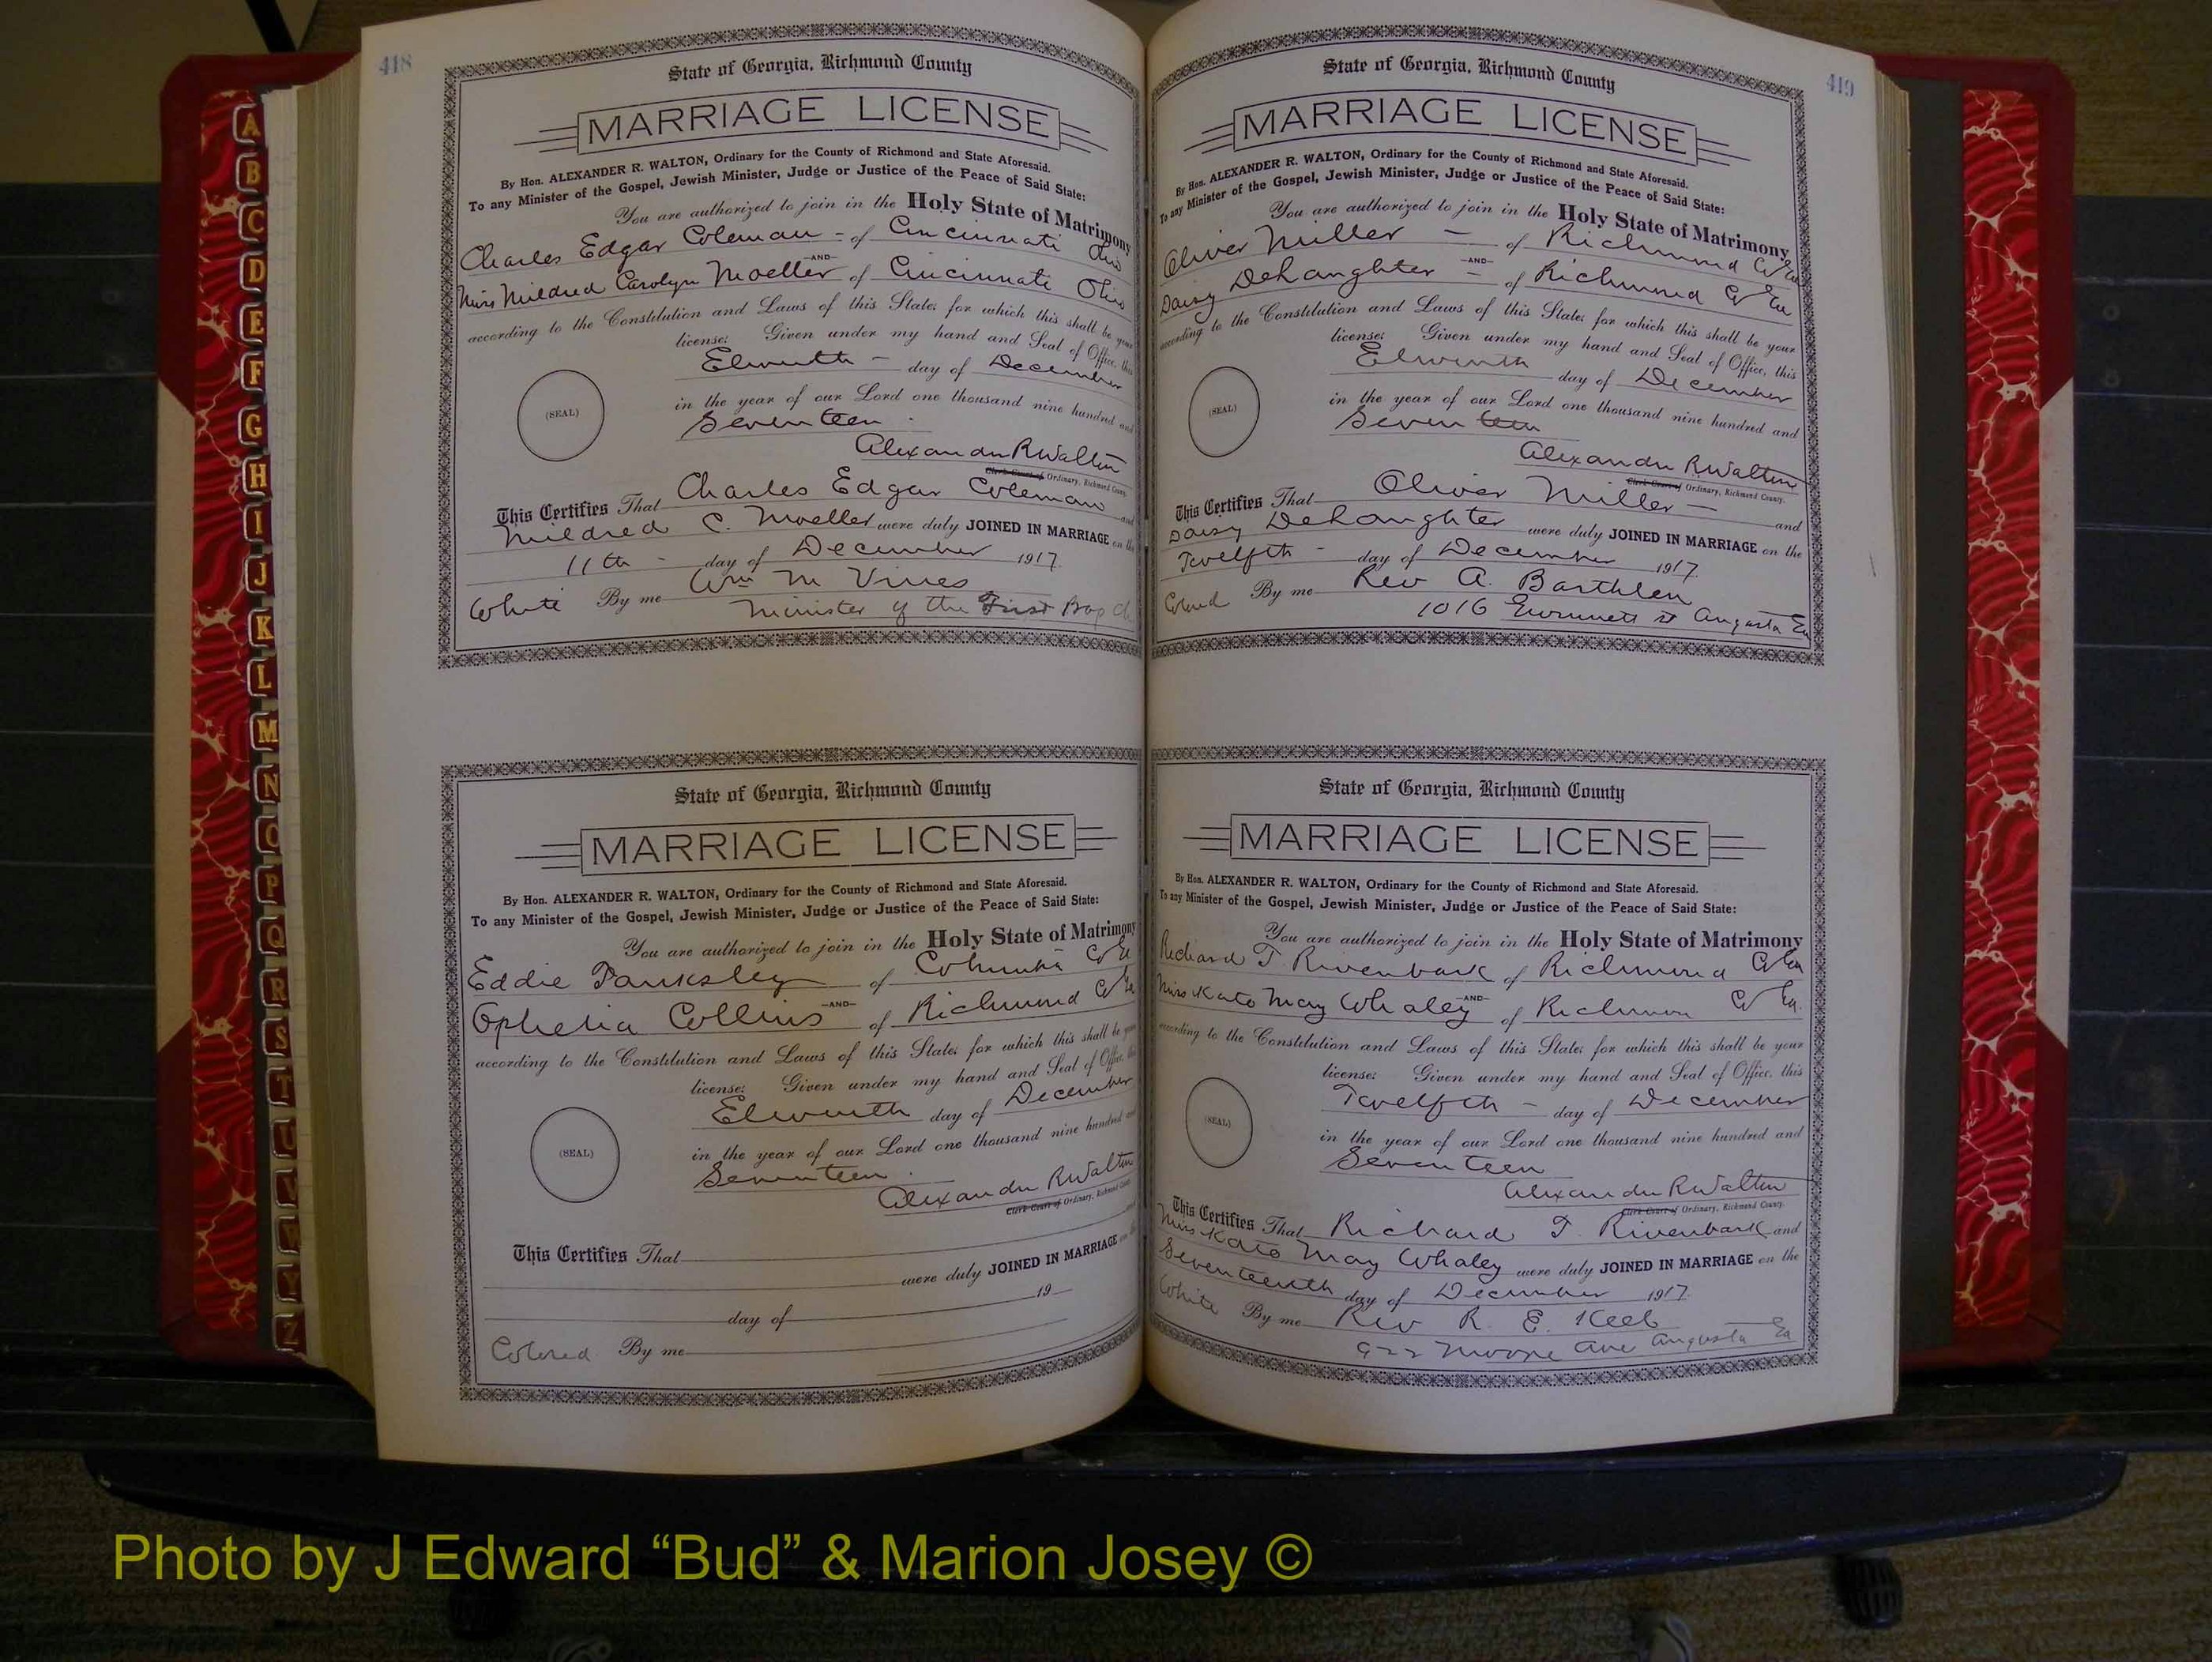 418
State of Georgia, Richmond County
MARRIAGE LICENSE
By Hon. ALEXANDER R. WALTON, Ordinary for the County of Richmond and State Aforesaid.
To any Minister of the Gospel, Jewish Minister, Judge or Justice of the Peace of Said State:
You are authorized to join in the Holy State of Matrimony
Charles Edgar Coleman - of Cincinnati Ohio
-AND-
Miss Mildred Carolyn Moeller of Cincinnati Ohio
according to the Constitution and Laws of this State; for which this shall be your
license: Given under my hand and Seal of Office, this
Eleventh - day of December
(SEAL)
in the year of our Lord one thousand nine hundred and
Seventeen
Alexander R Walton
Clerk Court of Ordinary, Richmond County.
This Certifies That Charles Edgar Coleman and
Mildred C. Moeller were duly JOINED IN MARRIAGE on the
11th - day of December 1917.
White By me Wm M Vines
Minister of the First Bap Ch
State of Georgia, Richmond County
MARRIAGE LICENSE
By Hon. ALEXANDER R. WALTON, Ordinary for the County of Richmond and State Aforesaid.
To any Minister of the Gospel, Jewish Minister, Judge or Justice of the Peace of Said State:
You are authorized to join in the Holy State of Matrimony
Eddie Tanksley of Columbia Co Ga
-AND-
Ophelia Collins of Richmond Co Ga
according to the Constitution and Laws of this State; for which this shall be your
license: Given under my hand and Seal of Office, this
Eleventh day of December
(SEAL)
in the year of our Lord one thousand nine hundred and
Seventeen
Alexander R Walton
Clerk Court of Ordinary, Richmond County.
This Certifies That and
were duly JOINED IN MARRIAGE on the
day of 19
Colored By me
419
State of Georgia, Richmond County
MARRIAGE LICENSE
By Hon. ALEXANDER R. WALTON, Ordinary for the County of Richmond and State Aforesaid.
To any Minister of the Gospel, Jewish Minister, Judge or Justice of the Peace of Said State:
You are authorized to join in the Holy State of Matrimony
Oliver Miller - of Richmond Co Ga
-AND-
Daisy Dehaughter - of Richmond Co Ga
according to the Constitution and Laws of this State; for which this shall be your
license: Given under my hand and Seal of Office, this
Eleventh day of December
(SEAL)
in the year of our Lord one thousand nine hundred and
Seventeen
Alexander R Walton
Clerk Court of Ordinary, Richmond County.
This Certifies That Oliver Miller - and
Daisy Dehaughter were duly JOINED IN MARRIAGE on the
Twelfth - day of December 1917.
Colored By me Rev A. Barthlen
1016 st Augusta Ga
State of Georgia, Richmond County
MARRIAGE LICENSE
By Hon. ALEXANDER R. WALTON, Ordinary for the County of Richmond and State Aforesaid.
To any Minister of the Gospel, Jewish Minister, Judge or Justice of the Peace of Said State:
You are authorized to join in the Holy State of Matrimony
Richard T. Rivenbark of Richmond Co Ga
-AND-
Miss Kate May Whaley of Richmon Co Ga.
according to the Constitution and Laws of this State; for which this shall be your
license: Given under my hand and Seal of Office, this
Twelfth - day of December
(SEAL)
in the year of our Lord one thousand nine hundred and
Seventeen
Alexander R Walton
Clerk Court of Ordinary, Richmond County.
This Certifies That Richard T. Rivenbark and
Miss Kate May Whaley were duly JOINED IN MARRIAGE on the
Seventeenth day of December 1917.
White By me Rev R. E. Keeb
922 Moore Ave Augusta Ga
A
B
C
D
E
F
G
H
I
J
K
L
M
N
O
P
Q
R
S
T
U
V
W
Y
Z
Photo by J Edward “Bud” & Marion Josey ©